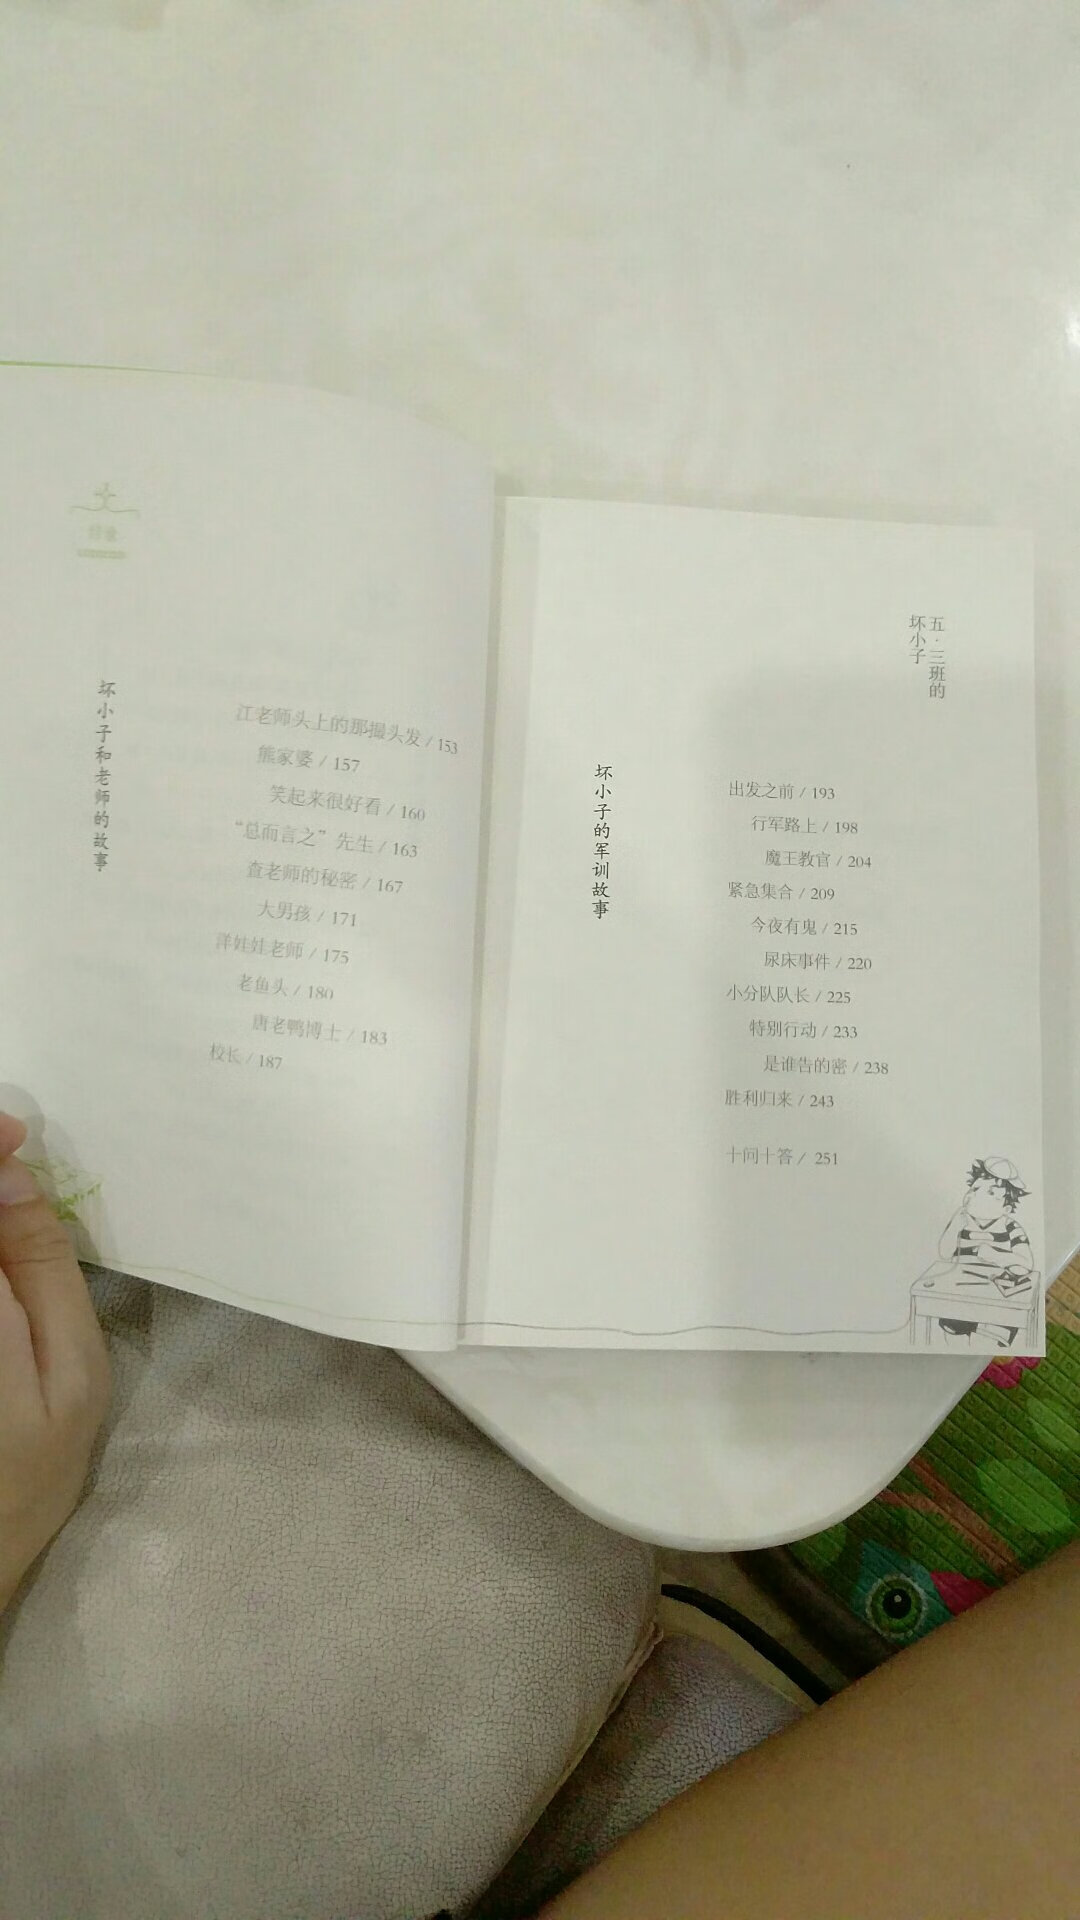 坏小子和老师的故事
江老师头上的那撮头发 / 153
熊家婆 / 157
笑起来很好看 / 160
“总而言之”先生 / 163
查老师的秘密 / 167
大男孩 / 171
洋娃娃老师 / 175
老鱼头 / 180
唐老鸭博士 / 183
校长 / 187
五·三班的
坏小子
坏小子的军训故事
出发之前 / 193
行军路上 / 198
魔王教官 / 204
紧急集合 / 209
今夜有鬼 / 215
尿床事件 / 220
小分队队长 / 225
特别行动 / 233
是谁告的密 / 238
胜利归来 / 243
十问十答 / 251